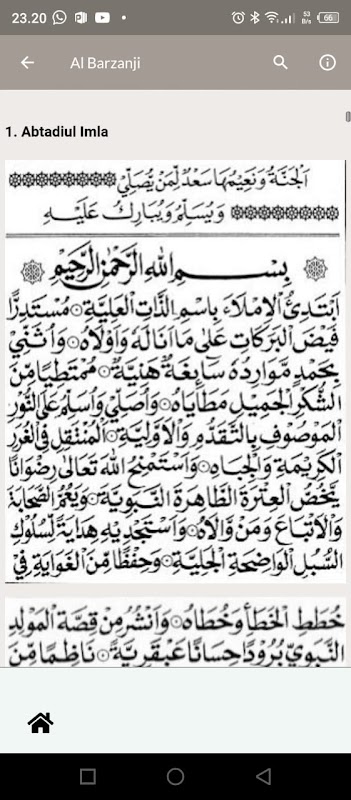 23.20
53 B/s
66
Al Barzanji
1. Abtadiul Imla
اَلْجَنَّةُ وَنَعِيْمُهَا سَعْدٌ لِمَنْ يُصَلِّيْ
وَيُسَلِّمُ وَيُبَارِكُ عَلَيْهِ
بِسْمِ اللهِ الرَّحْمٰنِ الرَّحِيْمِ
اَبْتَدِئُ الْاِمْلَاءَ بِاسْمِ الذَّاتِ الْعَلِيَّةِ۞ مُسْتَدِرًّا
فَيْضَ الْبَرَكَاتِ عَلٰى مَا اَنَالَهُ وَاَوْلَاهُ۞ وَاُثَنِّيْ
بِحَمْدٍ مَوَارِدُهُ سَائِغَةٌ هَنِيَّةٌ۞ مُمْتَطِيًا مِنَ
الشُّكْرِ الْجَمِيْلِ مَطَايَاهُ۞ وَاُصَلِّيْ وَاُسَلِّمُ عَلَى النُّوْرِ
الْمَوْصُوْفِ بِالتَّقَدُّمِ وَالْاَوَّلِيَّةِ۞ الْمُنْتَقِلِ فِي الْغُرَرِ
الْكَرِيْمَةِ وَالْجِبَاهِ۞ وَاَسْتَمْنِحُ اللهَ تَعَالٰى رِضْوَانًا
يَخُصُّ الْعِتْرَةَ الطَّاهِرَةَ النَّبَوِيَّةَ۞ وَيَعُمُّ الصَّحَابَةَ
وَالْاَتْبَاعَ وَمَنْ وَالَاهُ۞ وَاَسْتَجْدِيْهِ هِدَايَةً لِسُلُوْكِ
السُّبُلِ الْوَاضِحَةِ الْجَلِيَّةِ۞ وَحِفْظًا مِنَ الْغَوَايَةِ فِيْ
خُطَطِ الْخَطَأِ وَخُطَاهُ۞ وَاَنْشُرُ مِنْ قِصَّةِ الْمَوْلِدِ
النَّبَوِيِّ بُرُوْدًا حِسَانًا عَبْقَرِيَّةً۞ نَاظِمًا مِنَ